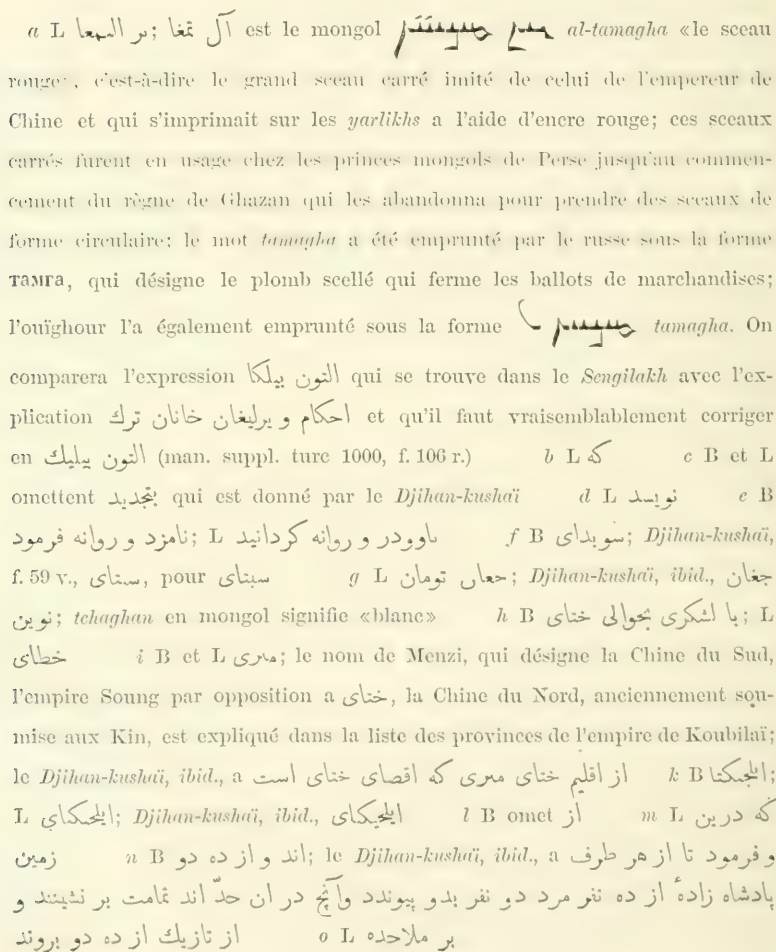 a L بر السمعا; آل تمغا est le mongol al-tamagha «le sceau
rouge», c'est-à-dire le grand sceau carré imité de celui de l'empereur de
Chine et qui s'imprimait sur les yarlikhs a l'aide d'encre rouge; ces sceaux
carrés furent en usage chez les princes mongols de Perse jusqu'au commen-
cement du règne de Ghazan qui les abandonna pour prendre des sceaux de
forme circulaire; le mot tamagha a été emprunté par le russe sous la forme
тамга, qui désigne le plomb scellé qui ferme les ballots de marchandises;
l'ouïghour l'a également emprunté sous la forme tamagha. On
comparera l'expression التون بيلكا qui se trouve dans le Sengilakh avec l'ex-
plication احكام و يرليغان خانان ترك et qu'il faut vraisemblablement corriger
en التون بيليك (man. suppl. turc 1000, f. 106 r.) b L كه c B et L
omettent بتجديد qui est donné par le Djihan-kushaï d L نويسد e B
نامزد و روانه فرمود; L ياوودر و روانه كردانيد f B سوبداى; Djihan-kushaï,
f. 59 v., ستاى, pour سبتاى g L حعاں تومان; Djihan-kushaï, ibid., جغان
نوين; tchaghan en mongol signifie «blanc» h B با لشكرى بحوالى ختاى; L
خطاى i B et L مىرى; le nom de Menzi, qui désigne la Chine du Sud,
l'empire Soung par opposition a ختاى, la Chine du Nord, anciennement sou-
mise aux Kin, est expliqué dans la liste des provinces de l'empire de Koubilaï;
le Djihan-kushaï, ibid., a از اقليم ختاى مىرى كه اقصاى ختاى است k B ايلجيكتا;
L ايلحىكاى; Djihan-kushaï, ibid., ايلجيكاى l B omet از m L كه درين
زمين n B اند و از ده دو; le Djihan-kushaï, ibid., a و فرمود تا از هر طرف
پادشاه زاده از ده نفر مرد دو نفر بدو پيوندد وآنج در ان حدّ اند تمامت بر نشينند و
از تازيك از ده دو بروند o L بر ملاحده